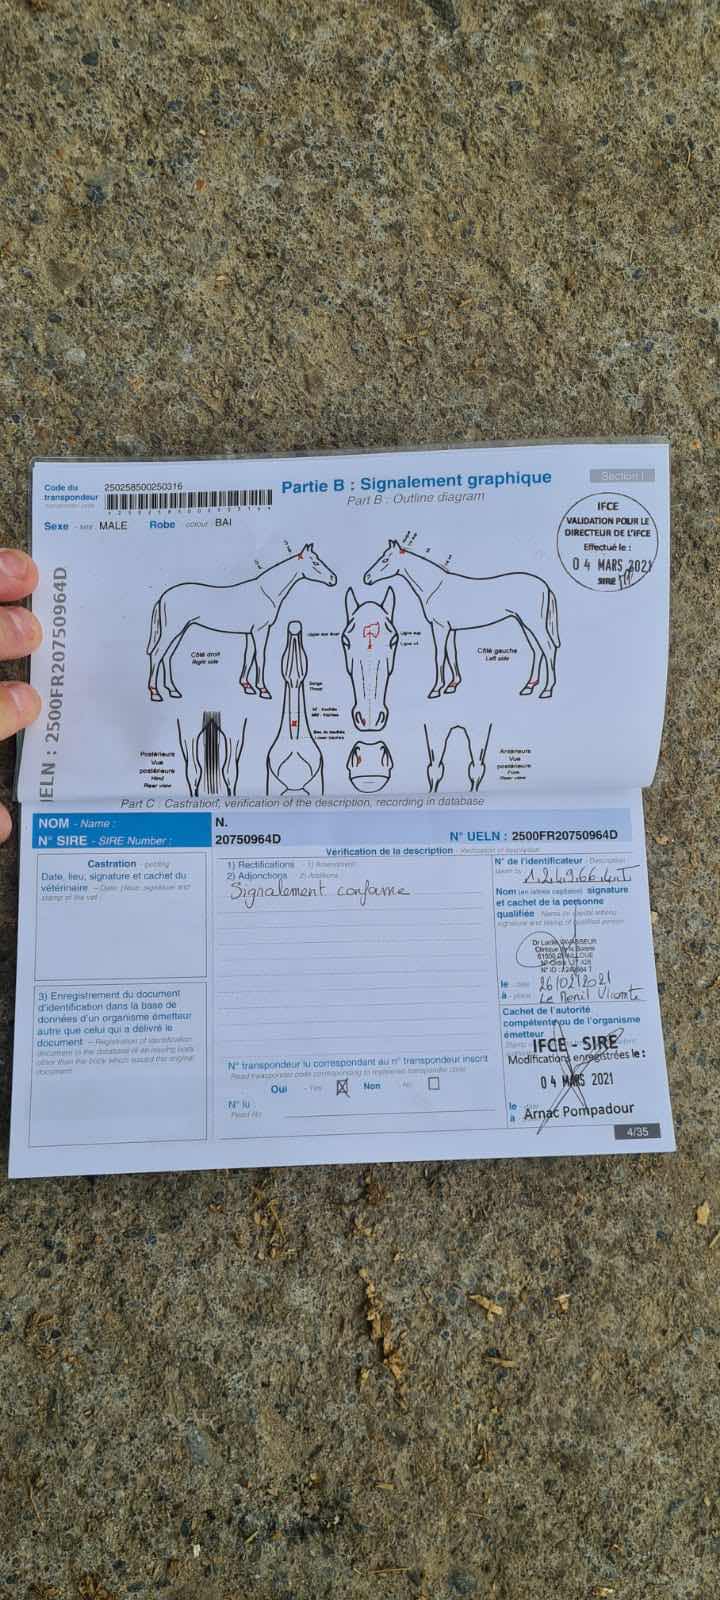 Code du 250258500250316
transpondeur
Partie B : Signalement graphique
Section I
Part B : Outline diagram
Sexe MALE Robe colour BAI
IFCE
VALIDATION POUR LE
DIRECTEUR DE L'IFCE
Effectué le :
0 4 MARS 2021
SIRE
UELN : 2500FR20750964D
Côté droit
Right side
Côté gauche
Left side
Postérieurs
Vue
postérieure
Hind
Rear view
Antérieurs
Vue
postérieure
Fore
Rear view
Part C : Castration, verification of the description, recording in database
NOM - Name : N.
N° SIRE - SIRE Number : 20750964D N° UELN : 2500FR20750964D
Vérification de la description - Verification of description
Castration - gelding
Date, lieu, signature et cachet du
vétérinaire - Date, place, signature and
stamp of the vet
1) Rectifications - 1) Amendment
2) Adjonctions 2) Additions
Signalement conforme
N° de l'identificateur - Description
taken by
Nom (en lettres capitales) signature
et cachet de la personne
qualifiée - Name (in capital letters)
signature and stamp of qualified person
le - date 26/02/2021
à - place Le Menil Vicomte
3) Enregistrement du document
d'identification dans la base de
données d'un organisme émetteur
autre que celui qui a délivré le
document - Registration of identification
document in the database of an issuing body
other than the body which issued the original
document
Cachet de l'autorité
compétente ou de l'organisme
émetteur
IFCE - SIRE
Modifications enregistrées le :
0 4 MARS 2021
le - date
à Arnac Pompadour
N° transpondeur lu correspondant au n° transpondeur inscrit
Read transponder code corresponding to registered transponder code
Oui - Yes Non - No
N° lu :
Read No
4/35